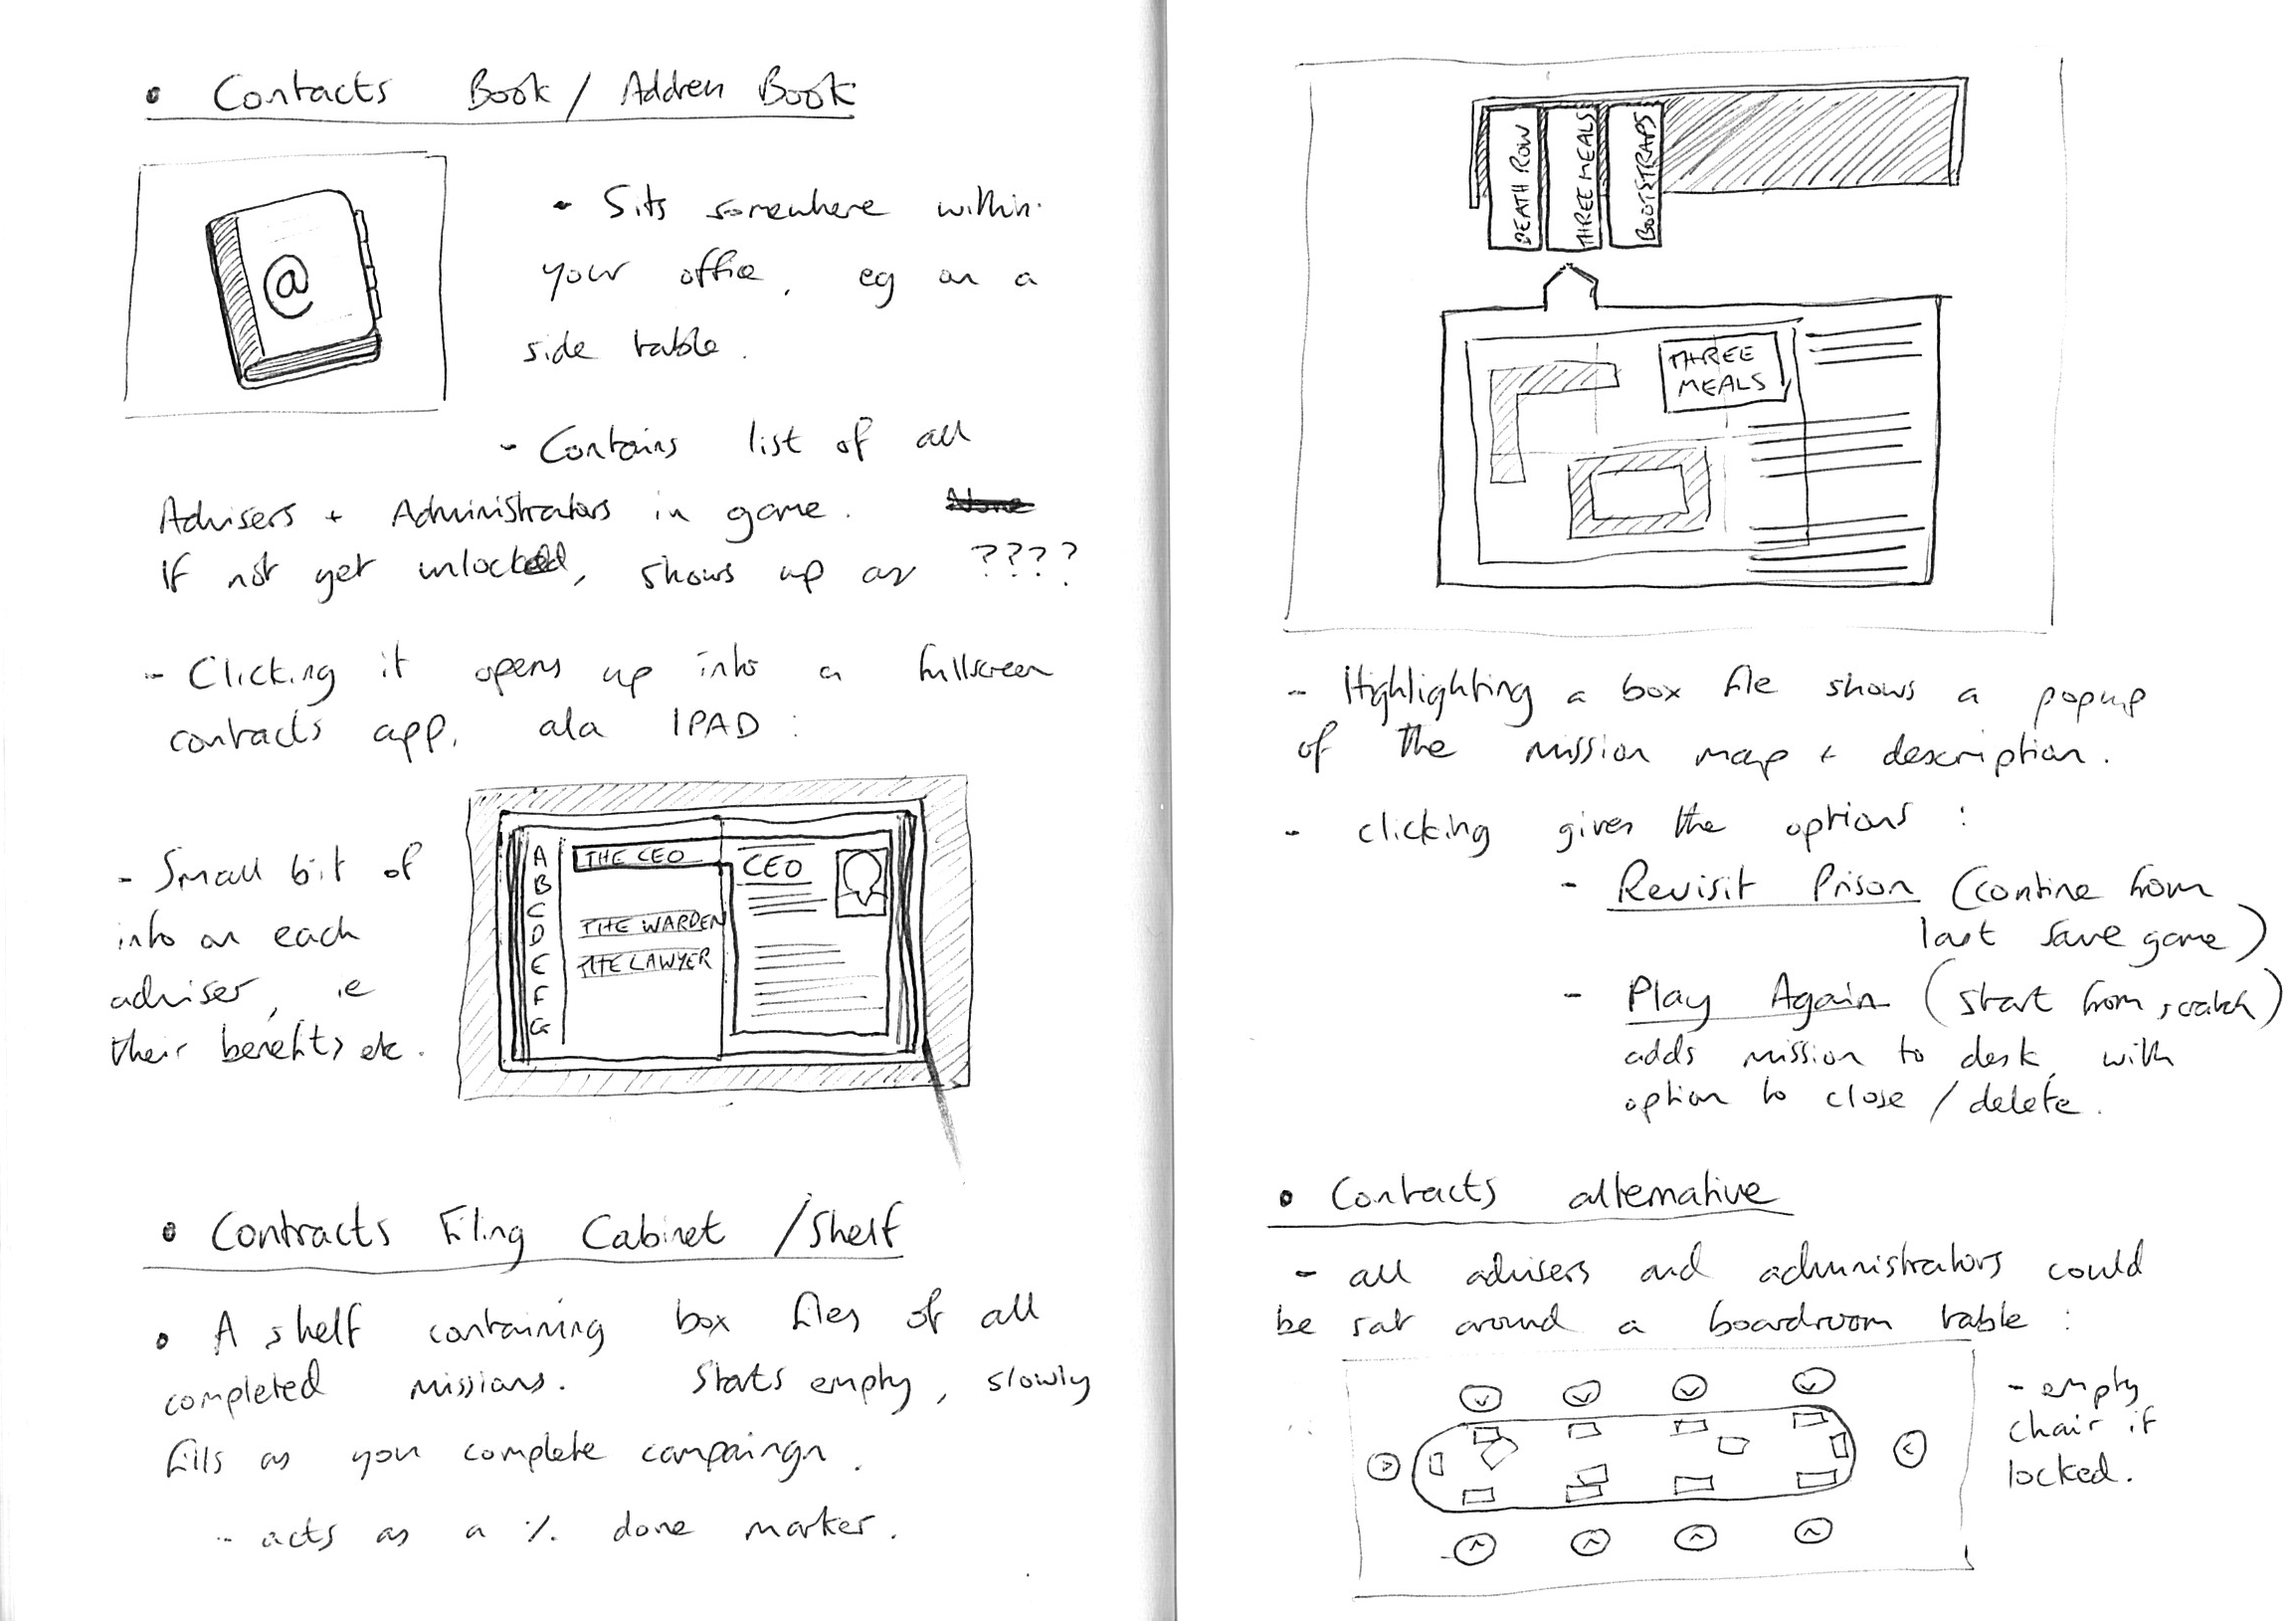 • Contacts Book / Address Book
@
- Sits somewhere within
your office, eg on a
side table.
- Contains list of all
Advisers + Administrators in game. None
If not yet unlocked, shows up as ????
- Clicking it opens up into a fullscreen
contacts app, ala IPAD :
- Small bit of
info on each
adviser, ie
their benefits etc.
A
B
C
D
E
F
G
THE CEO
THE WARDEN
THE LAWYER
CEO
• Contracts Filing Cabinet / Shelf
• A shelf containing box files of all
completed missions. Starts empty, slowly
fills as you complete campaingn.
- acts as a % done marker.
DEATH ROW
THREE MEALS
BOOTSTRAPS
THREE
MEALS
- Highlighting a box file shows a popup
of the mission map + description.
- clicking gives the options :
- Revisit Prison (contine from
last save game)
- Play Again (start from scratch)
adds mission to desk, with
option to close / delete.
• Contacts alternative
- all advisers and administrators could
be sat around a boardroom table :
- empty
chair if
locked.